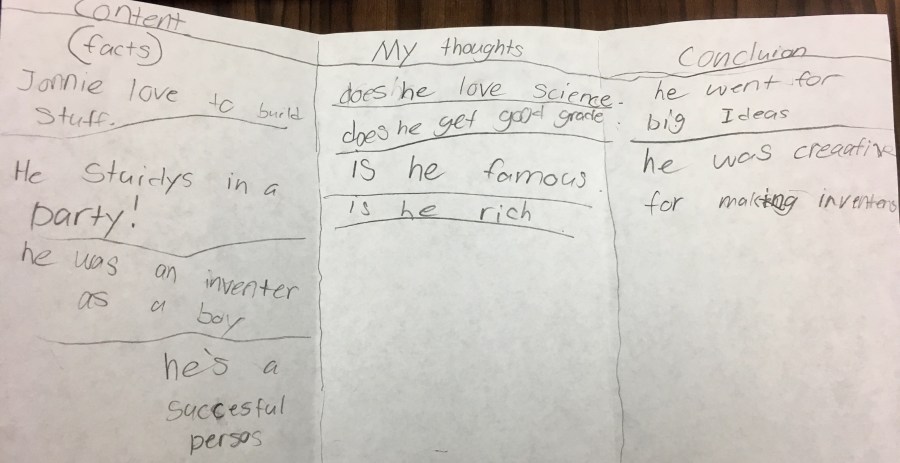 Content
(facts)
Jonnie love to build
Stuff.
He Stuidys in a
party!
he was an inventer
as a boy
he's a
succesful
persos
My thoughts
does he love science.
does he get good grade.
is he famous.
is he rich
Concluion
he went for
big Ideas
he was creaative
for making inventers